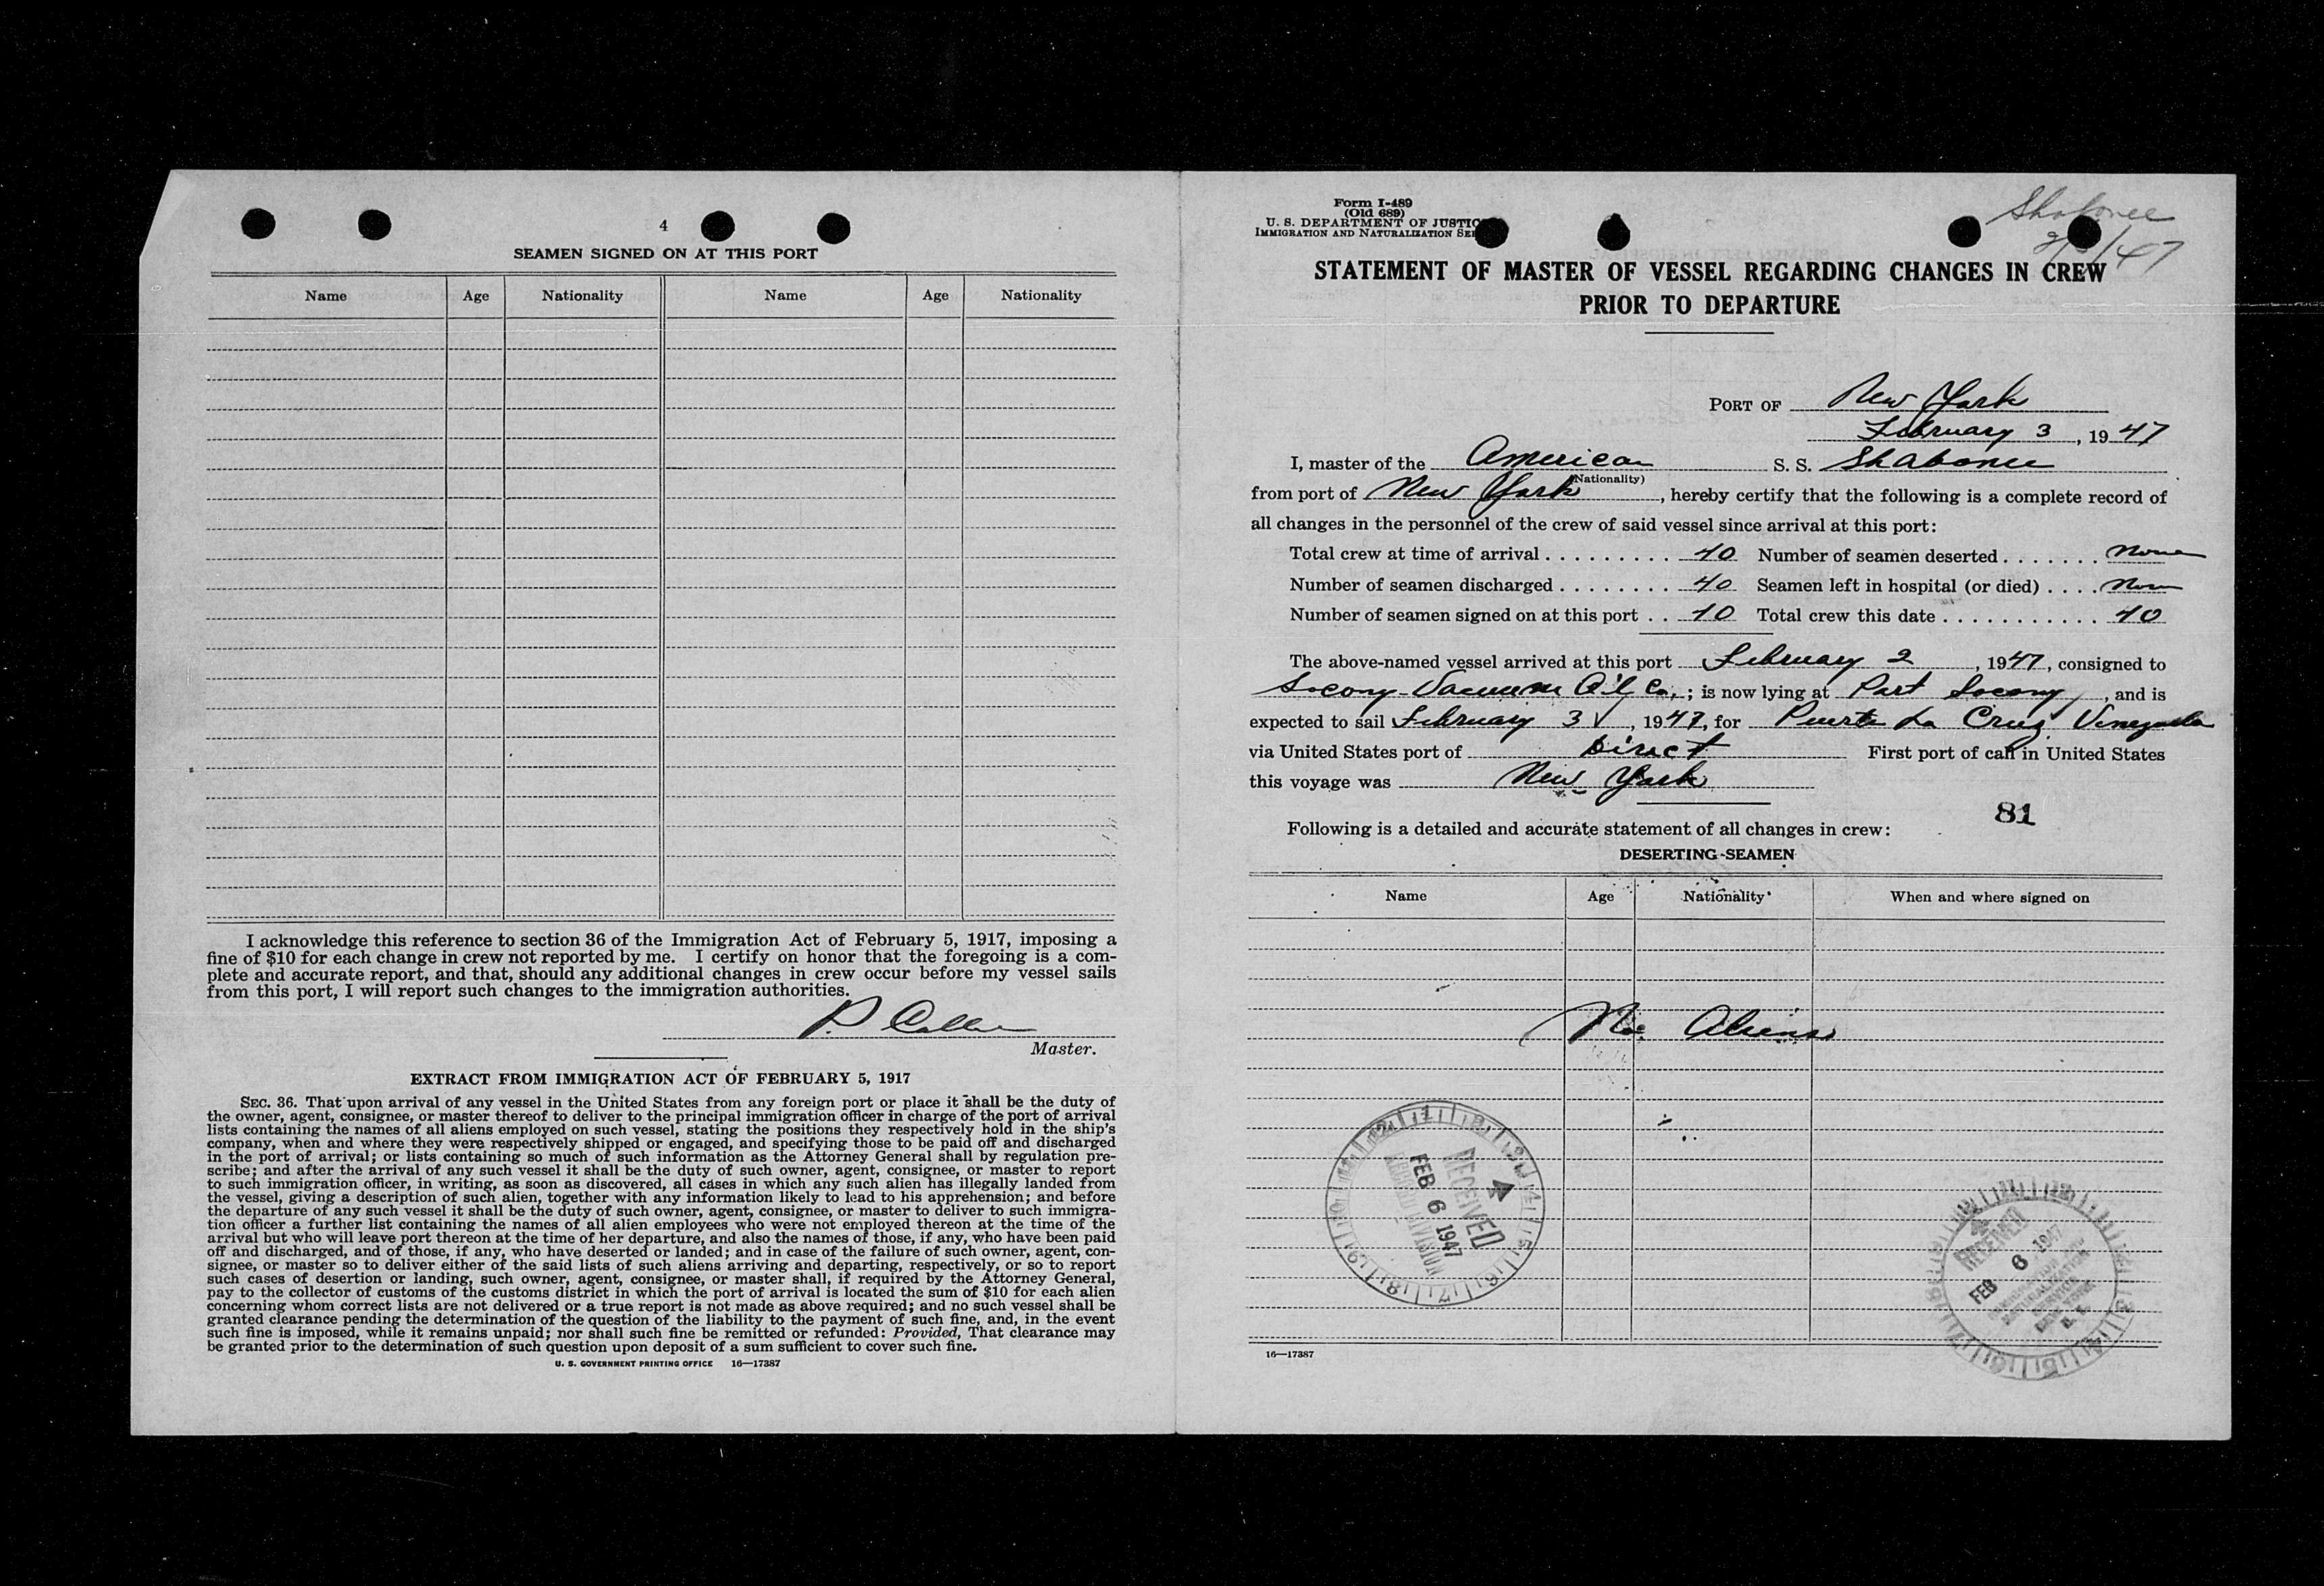 4
SEAMEN SIGNED ON AT THIS PORT
Name Age Nationality Name Age Nationality
I acknowledge this reference to section 36 of the Immigration Act of February 5, 1917, imposing a
fine of $10 for each change in crew not reported by me. I certify on honor that the foregoing is a com-
plete and accurate report, and that, should any additional changes in crew occur before my vessel sails
from this port, I will report such changes to the immigration authorities.
P.
Master.
EXTRACT FROM IMMIGRATION ACT OF FEBRUARY 5, 1917
SEC. 36. That upon arrival of any vessel in the United States from any foreign port or place it shall be the duty of
the owner, agent, consignee, or master thereof to deliver to the principal immigration officer in charge of the port of arrival
lists containing the names of all aliens employed on such vessel, stating the positions they respectively hold in the ship's
company, when and where they were respectively shipped or engaged, and specifying those to be paid off and discharged
in the port of arrival; or lists containing so much of such information as the Attorney General shall by regulation pre-
scribe; and after the arrival of any such vessel it shall be the duty of such owner, agent, consignee, or master to report
to such immigration officer, in writing, as soon as discovered, all cases in which any such alien has illegally landed from
the vessel, giving a description of such alien, together with any information likely to lead to his apprehension; and before
the departure of any such vessel it shall be the duty of such owner, agent, consignee, or master to deliver to such immigra-
tion officer a further list containing the names of all alien employees who were not employed thereon at the time of the
arrival but who will leave port thereon at the time of her departure, and also the names of those, if any, who have been paid
off and discharged, and of those, if any, who have deserted or landed; and in case of the failure of such owner, agent, con-
signee, or master so to deliver either of the said lists of such aliens arriving and departing, respectively, or so to report
such cases of desertion or landing, such owner, agent, consignee, or master shall, if required by the Attorney General,
pay to the collector of customs of the customs district in which the port of arrival is located the sum of $10 for each alien
concerning whom correct lists are not delivered or a true report is not made as above required; and no such vessel shall be
granted clearance pending the determination of the question of the liability to the payment of such fine, and, in the event
such fine is imposed, while it remains unpaid; nor shall such fine be remitted or refunded: Provided, That clearance may
be granted prior to the determination of such question upon deposit of a sum sufficient to cover such fine.
U. S. GOVERNMENT PRINTING OFFICE 16—17387
Form I-489
(Old 689)
U. S. DEPARTMENT OF JUSTIC
IMMIGRATION AND NATURALIZATION SE
Shabonee
2/3/47
STATEMENT OF MASTER OF VESSEL REGARDING CHANGES IN CREW
PRIOR TO DEPARTURE
PORT OF New York
February 3, 1947
I, master of the American S. S. Shabonee
(Nationality)
from port of New York, hereby certify that the following is a complete record of
all changes in the personnel of the crew of said vessel since arrival at this port:
Total crew at time of arrival . . . . . . . . . 40 Number of seamen deserted . . . . . . . None
Number of seamen discharged . . . . . . . . 40 Seamen left in hospital (or died) . . . . None
Number of seamen signed on at this port . . 40 Total crew this date . . . . . . . . . . . 40
The above-named vessel arrived at this port February 2, 1947, consigned to
Socony-Vacuum Oil Co.; is now lying at Port Socony, and is
expected to sail February 3, 1947, for Puerto La Cruz Venezuela
via United States port of Direct First port of call in United States
this voyage was New York
81
Following is a detailed and accurate statement of all changes in crew:
DESERTING SEAMEN
Name Age Nationality When and where signed on
No Aliens
RECEIVED
FEB 6 1947
RECORD DIVISION
RECEIVED
FEB 6 1947
16—17387